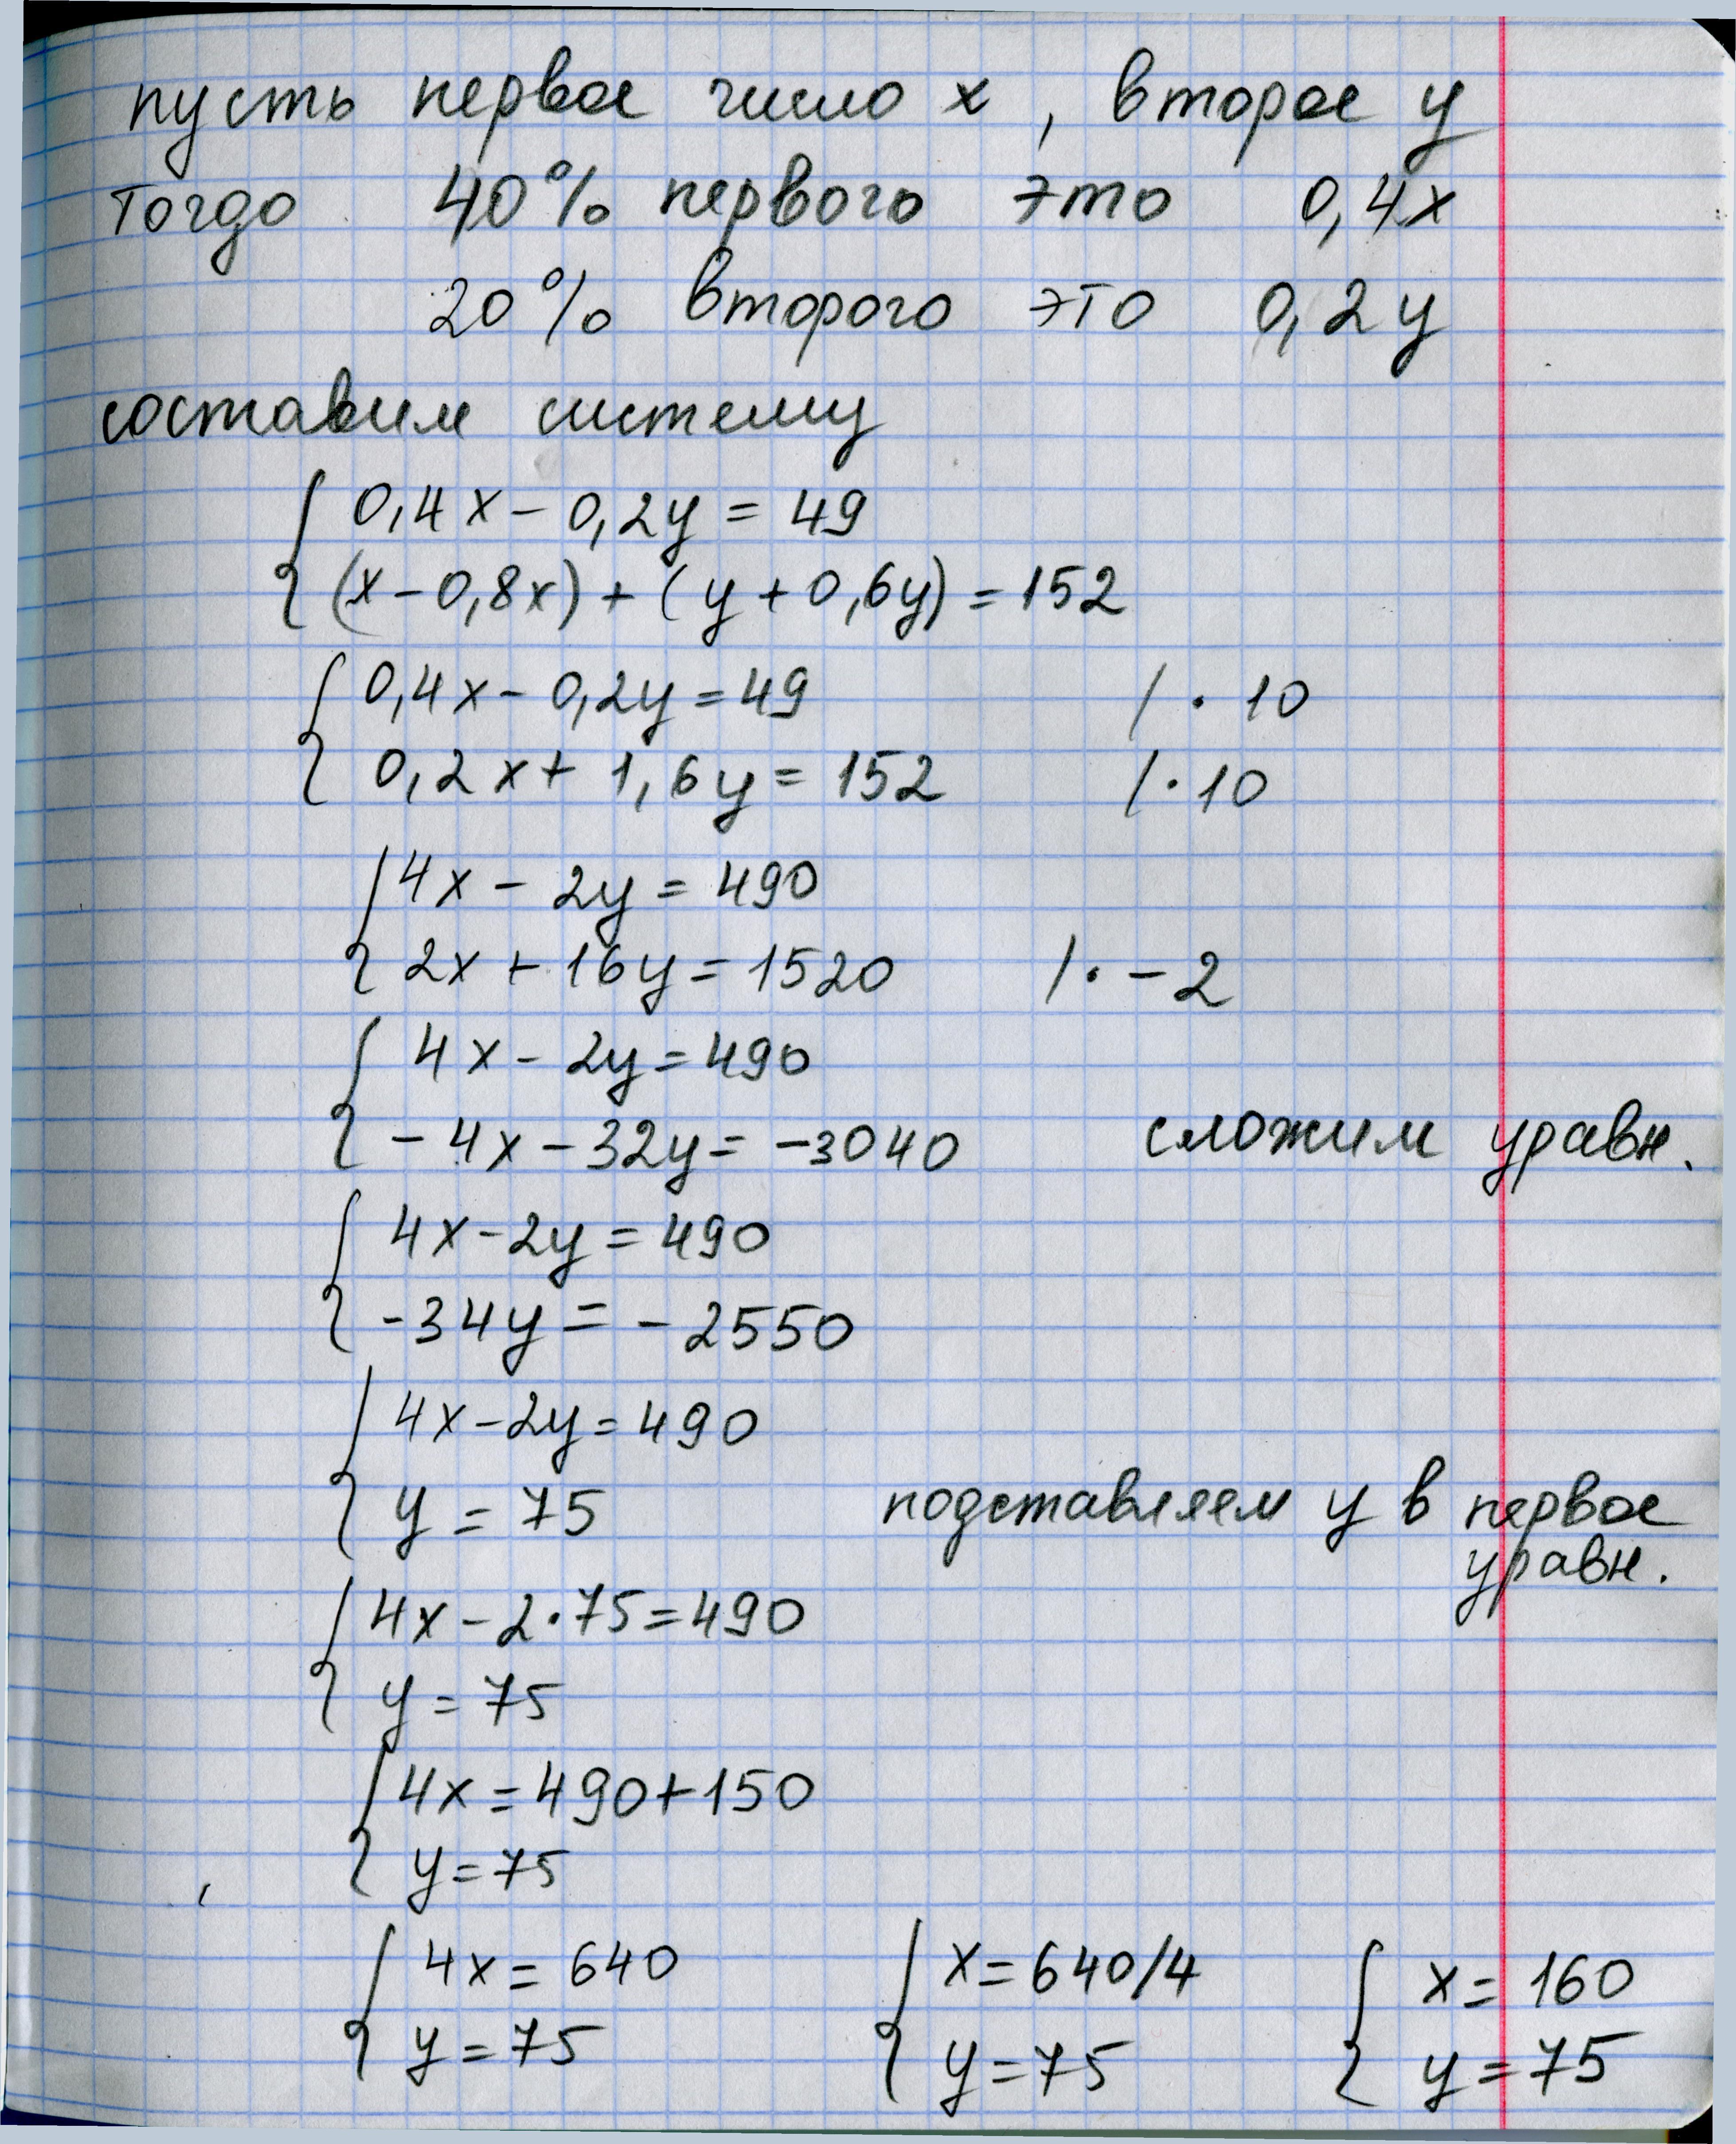 пусть первое число x, второе y
тогда 40% первого это 0,4x
20% второго это 0,2y
составим систему
0,4x - 0,2y = 49
(x - 0,8x) + (y + 0,6y) = 152
0,4x - 0,2y = 49 / · 10
0,2x + 1,6y = 152 / · 10
4x - 2y = 490
2x + 16y = 1520 / · -2
4x - 2y = 490
-4x - 32y = -3040 сложим уравн.
4x - 2y = 490
-34y = -2550
4x - 2y = 490
y = 75 подставляем y в первое
уравн.
4x - 2·75 = 490
y = 75
4x = 490 + 150
y = 75
4x = 640 x = 640/4 x = 160
y = 75 y = 75 y = 75